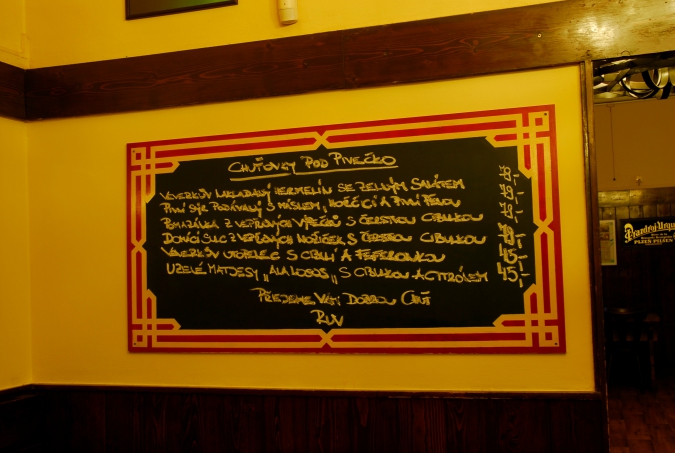 CHUŤOVKY POD PIVEČKO
VEVERKŮV NAKLÁDANÝ HERMELÍN SE ZELNÝM SALÁTEM
PIVNÍ SÝR PODÁVANÝ S MÁSLEM, HOŘČICÍ A PIVNÍ PĚNOU
POMAZÁNKA Z VEPŘOVÝCH VÝPEČKŮ S ČERSTVOU CIBULKOU
DOMÁCÍ SULC Z VEPŘOVÝCH NOŽIČEK S ČERSTVOU CIBULKOU
VEVERKŮV UTOPENEC S CIBULÍ A FEFERONKOU
UZENÉ MATJESY „ALA LOSOS„ S CIBULKOU A CITRÓNEM 45,-
PŘEJEME VÁM DOBROU CHUŤ
Prazdroj Urque
PLZEŇ PILSEN